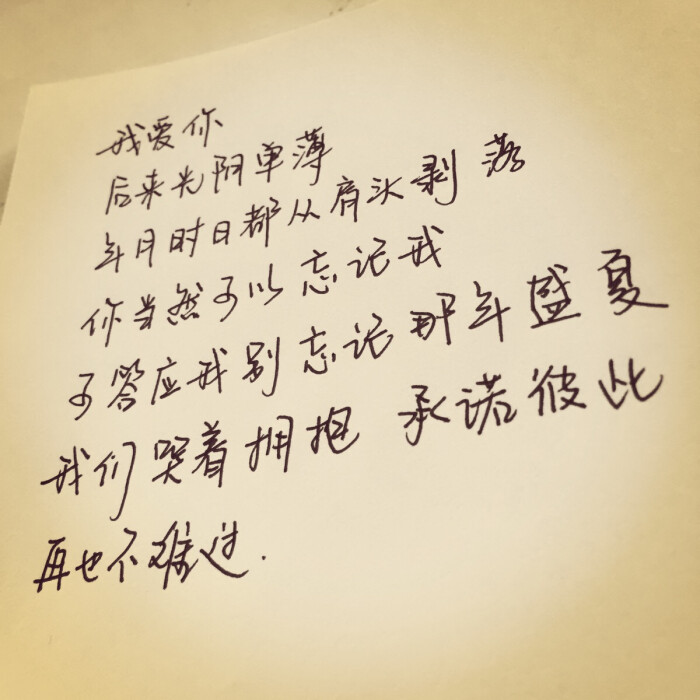 我爱你
后来光阴单薄
年月时日都从肩头剥落
你当然可以忘记我
可答应我别忘记那年盛夏
我们哭着拥抱 承诺彼此
再也不难过.